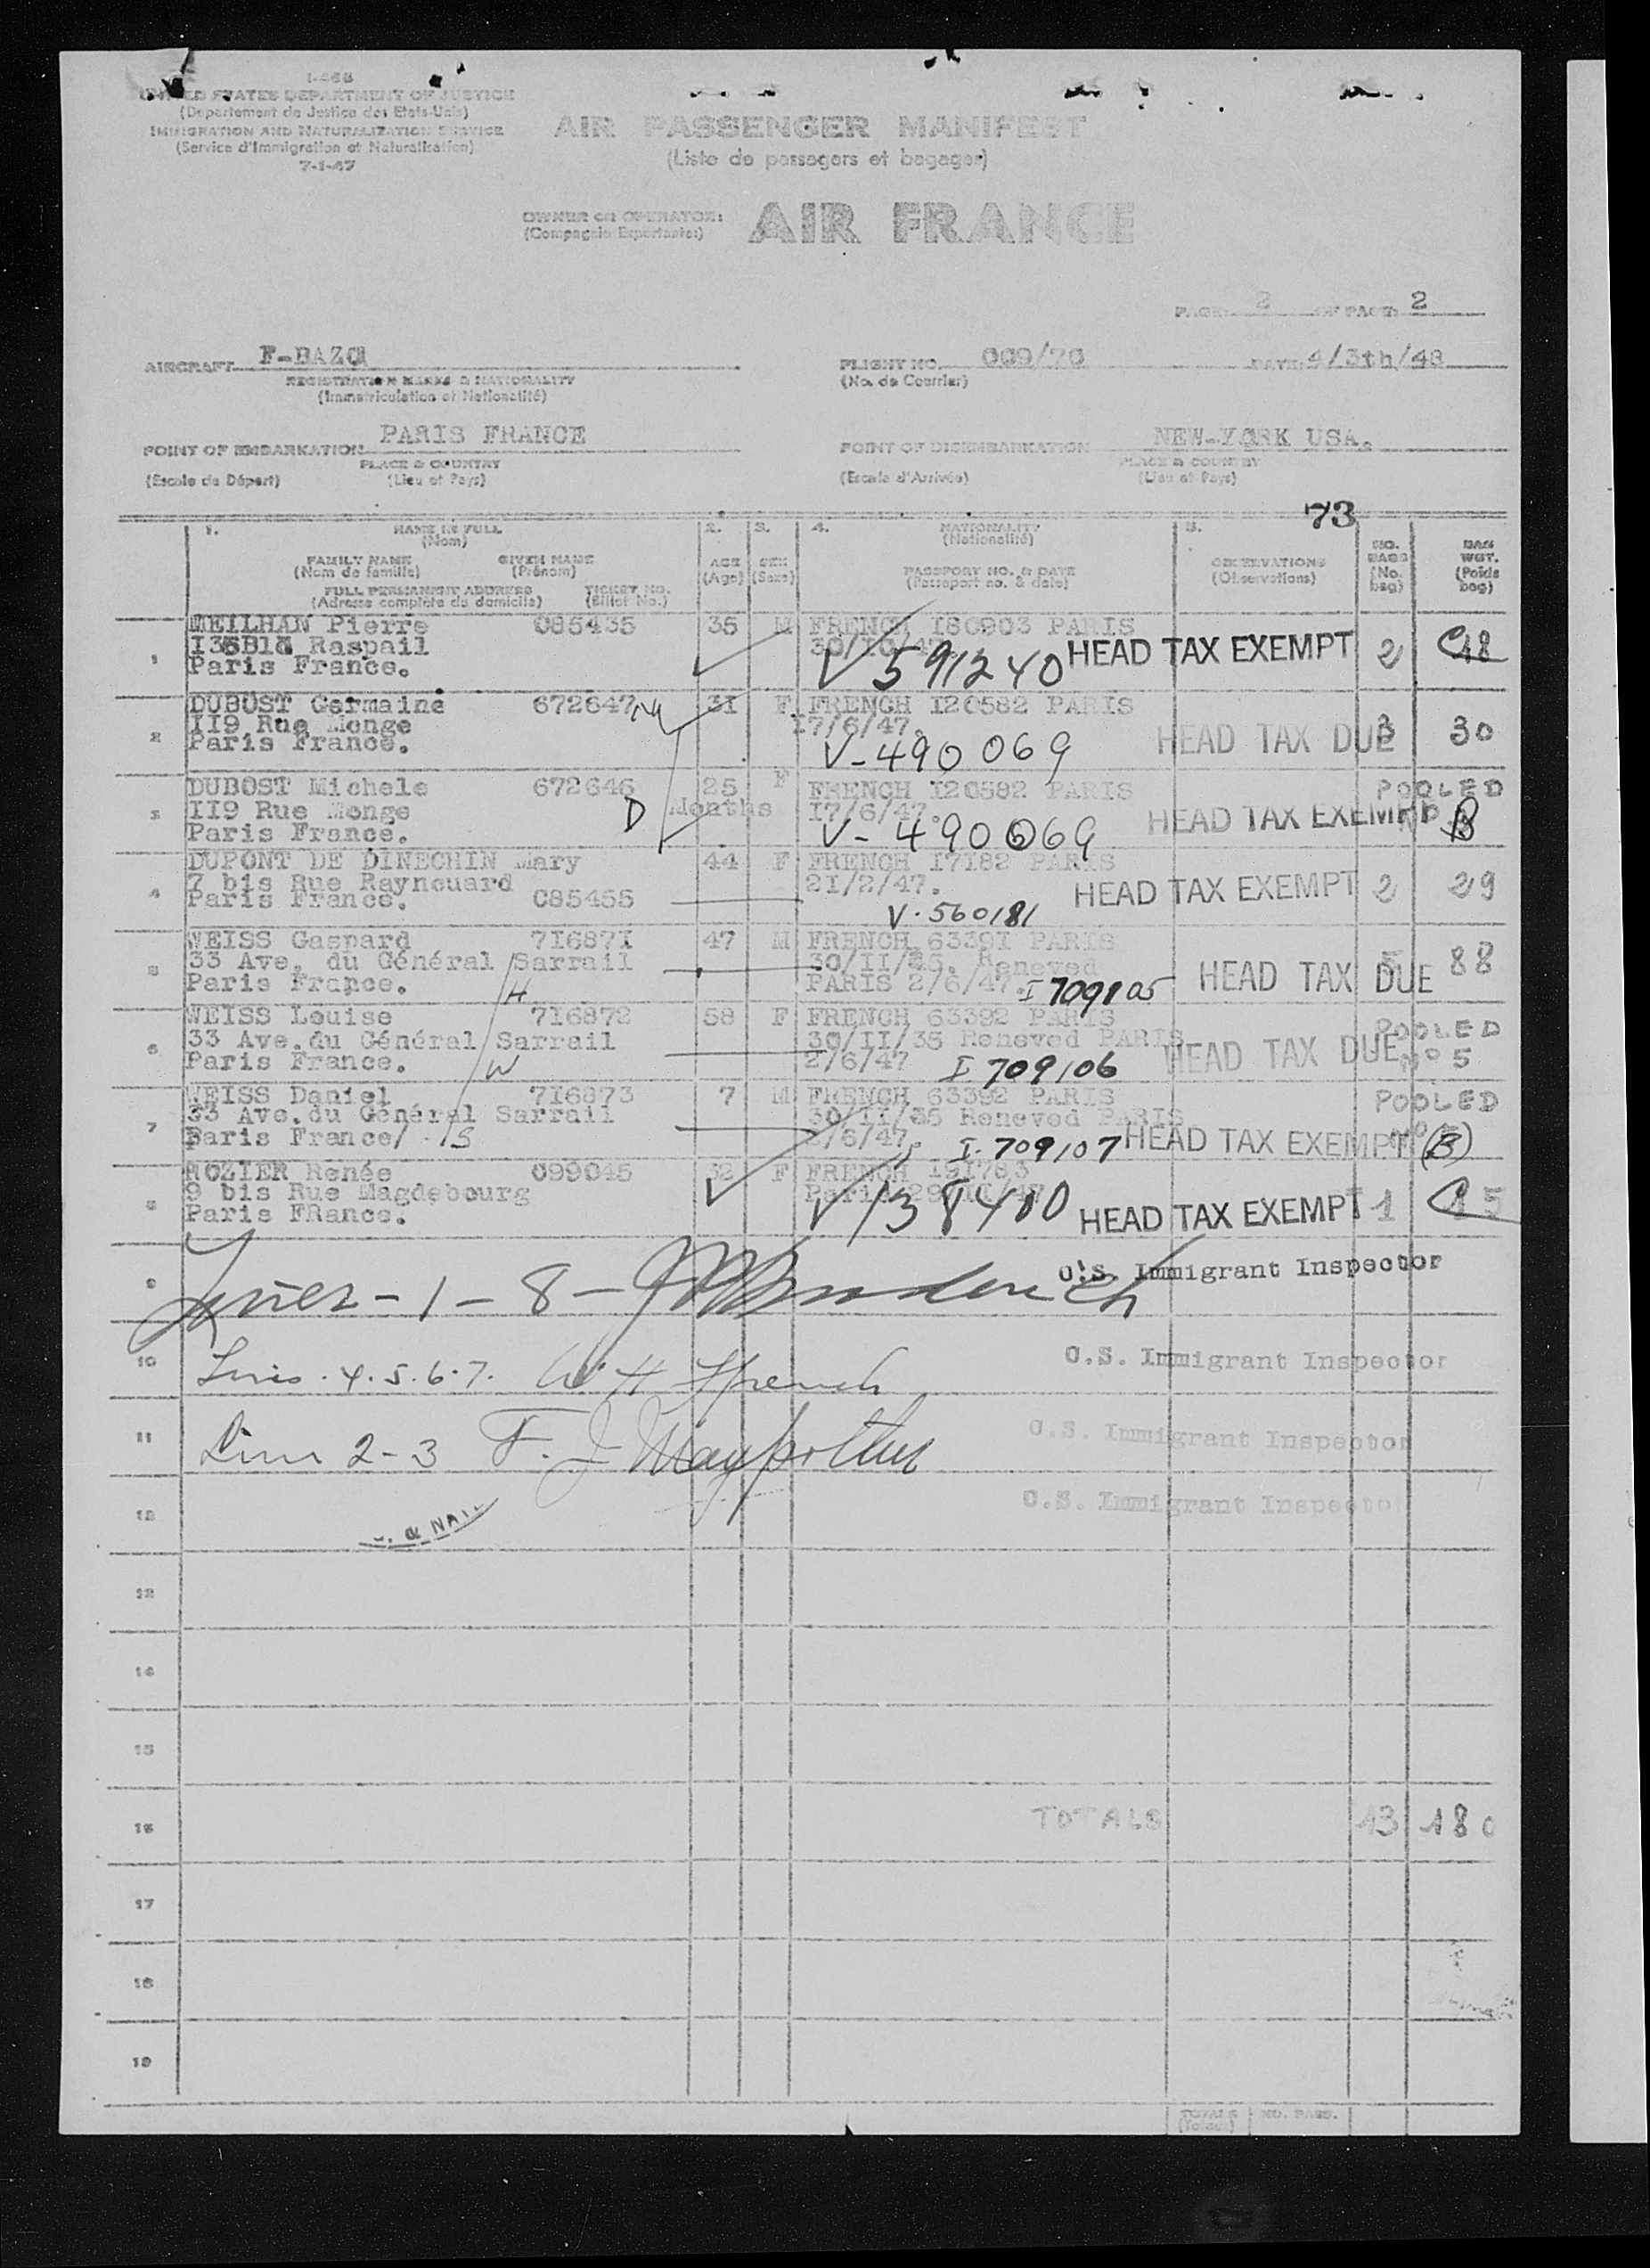 I-466
UNITED STATES DEPARTMENT OF JUSTICE
(Departement de Justice des Etats-Unis)
IMMIGRATION AND NATURALIZATION SERVICE
(Service d'Immigration et Naturalisation)
7-1-47
AIR PASSENGER MANIFEST
(Liste de passagers et bagages)
OWNER OR OPERATOR: AIR FRANCE
(Compagnie Exportante:)
PAGE: 2 OF PAGE: 2
AIRCRAFT F-BAZQ
REGISTRATION MARKS & NATIONALITY
(Immatriculation et Nationalité)
FLIGHT NO. 009/70 DATE: 4/3th/48
(No. de Courrier)
POINT OF EMBARKATION PARIS FRANCE
PLACE & COUNTRY
(Escale de Départ) (Lieu et Pays)
POINT OF DISEMBARKATION NEW-YORK USA.
PLACE & COUNTRY
(Escale d'Arrivée) (Lieu et Pays)
73
1. NAME IN FULL 2. 3. 4. NATIONALITY 5.
(Nom) (Nationalité)
FAMILY NAME GIVEN NAME AGE SEX PASSPORT NO. & DATE OBSERVATIONS NO. BAGS BAG WGT.
(Nom de famille) (Prénom) (Age) (Sexe) (Passeport no. & date) (Observations) (No. bag) (Poids bag)
FULL PERMANENT ADDRESS TICKET NO.
(Adresse complete du domicile) (Billet No.)
1 MEILHAN Pierre 085435 35 M FRENCH 180903 PARIS
Raspail 30/10/47 HEAD TAX EXEMPT 2 18
Paris France. V 591240
2 DUBOST Germaine 672647 31 F FRENCH I20582 PARIS
II9 Rue Monge I7/6/47. HEAD TAX DUE 3 30
Paris France. V-490069
3 DUBOST Michele 672646 25 F FRENCH I20582 PARIS POOLED
II9 Rue Monge D Months I7/6/47. HEAD TAX EXEMPT
Paris France. V-490069
4 DUPONT DE DINECHIN Mary 44 F FRENCH I7I82 PARIS
7 bis Rue Raynouard 2I/2/47. HEAD TAX EXEMPT 2 29
Paris France. 085455 V.560181
5 WEISS Gaspard 7I687I 47 M FRENCH 6339I PARIS
33 Ave. du Général Sarrail 30/II/35. Reneved HEAD TAX DUE 5 88
Paris France. H PARIS 2/6/47. I 709105
6 WEISS Louise 7I6872 58 F FRENCH 63392 PARIS POOLED
33 Ave.du Général Sarrail 30/II/35 Reneved PARIS HEAD TAX DUE No 5
Paris France. W 2/6/47 I 709106
7 WEISS Daniel 7I6873 7 M FRENCH 63392 PARIS POOLED
33 Ave.du Général Sarrail 30/II/35 Reneved PARIS
Paris France. S 2/6/47. I.709107 HEAD TAX EXEMPT (B)
8 ROZIER Renée 099045 32 F FRENCH 191783
9 bis Rue Magdebourg Paris HEAD TAX EXEMPT 1 15
Paris FRance. V 138400
9 Lines-1-8- U.S. Immigrant Inspector
10 Lines.4.5.6.7. W H Ffrench U.S. Immigrant Inspector
11 Lines 2-3 F. J. U.S. Immigrant Inspector
12 U.S. Immigrant Inspector
13
14
15
16 TOTALS 13 180
17
18
19
TOTALS NO. PASS.
(Totaux)